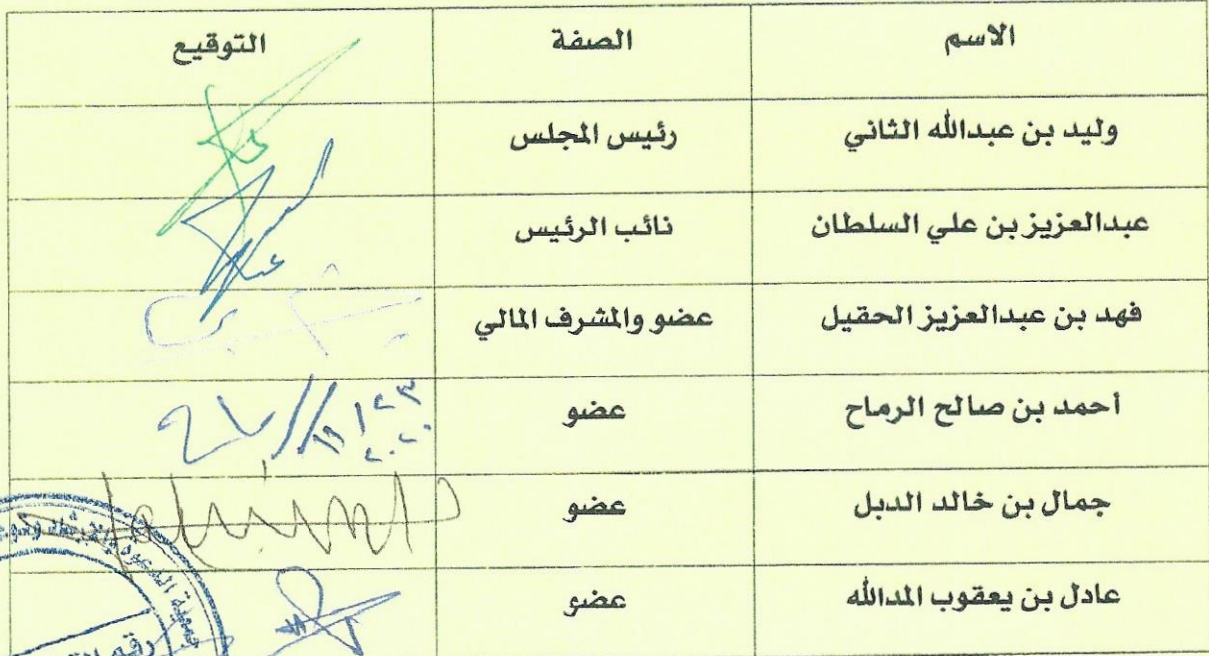 الاسم الصفة التوقيع
وليد بن عبدالله الثاني رئيس المجلس
عبدالعزيز بن علي السلطان نائب الرئيس
فهد بن عبدالعزيز الحقيل عضو والمشرف المالي
أحمد بن صالح الرماح عضو
جمال بن خالد الدبل عضو
عادل بن يعقوب المدالله عضو
جمعية الدعوة والإرشاد وتوعية
رقم